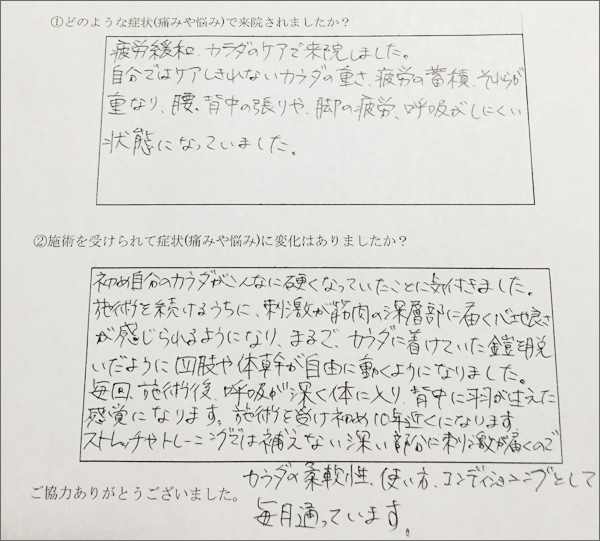 ①どのような症状(痛みや悩み)で来院されましたか？
疲労緩和、カラダのケアで来院しました。
自分ではケアしきれないカラダの重さ、疲労の蓄積、それらが
重なり、腰、背中の張りや、脚の疲労、呼吸がしにくい
状態になっていました。
②施術を受けられて症状(痛みや悩み)に変化はありましたか？
初め自分のカラダがこんなに硬くなっていたことに気付きました。
施術を続けるうちに、刺激が筋肉の深層部に届く心地良さ
が感じられるようになり、まるで、カラダに着けていた鎧を脱
いだように四肢や体幹が自由に動くようになりました。
毎回、施術後、呼吸が深く体に入り、背中に羽が生えた
感覚になります。施術を受け初め10年近くになります
ストレッチやトレーニングでは補えない深い部分に刺激が届くので
カラダの柔軟性、使い方、コンディショニングとして
ご協力ありがとうございました。
毎月通っています。